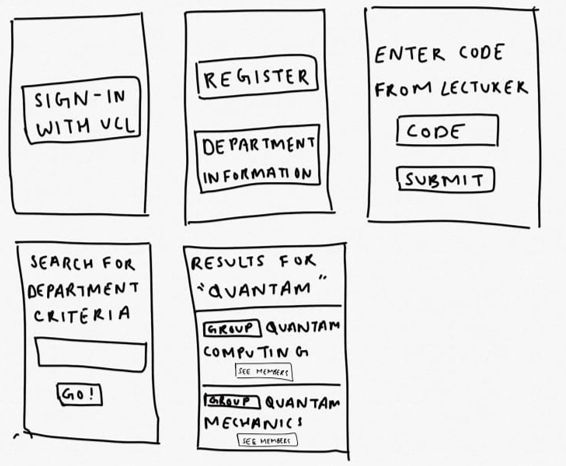 SIGN-IN
WITH UCL
REGISTER
DEPARTMENT
INFORMATION
ENTER CODE
FROM LECTURER
CODE
SUBMIT
SEARCH FOR
DEPARTMENT
CRITERIA
GO!
RESULTS FOR
"QUANTAM"
GROUP QUANTAM
COMPUTING
SEE MEMBERS
GROUP QUANTAM
MECHANICS
SEE MEMBERS